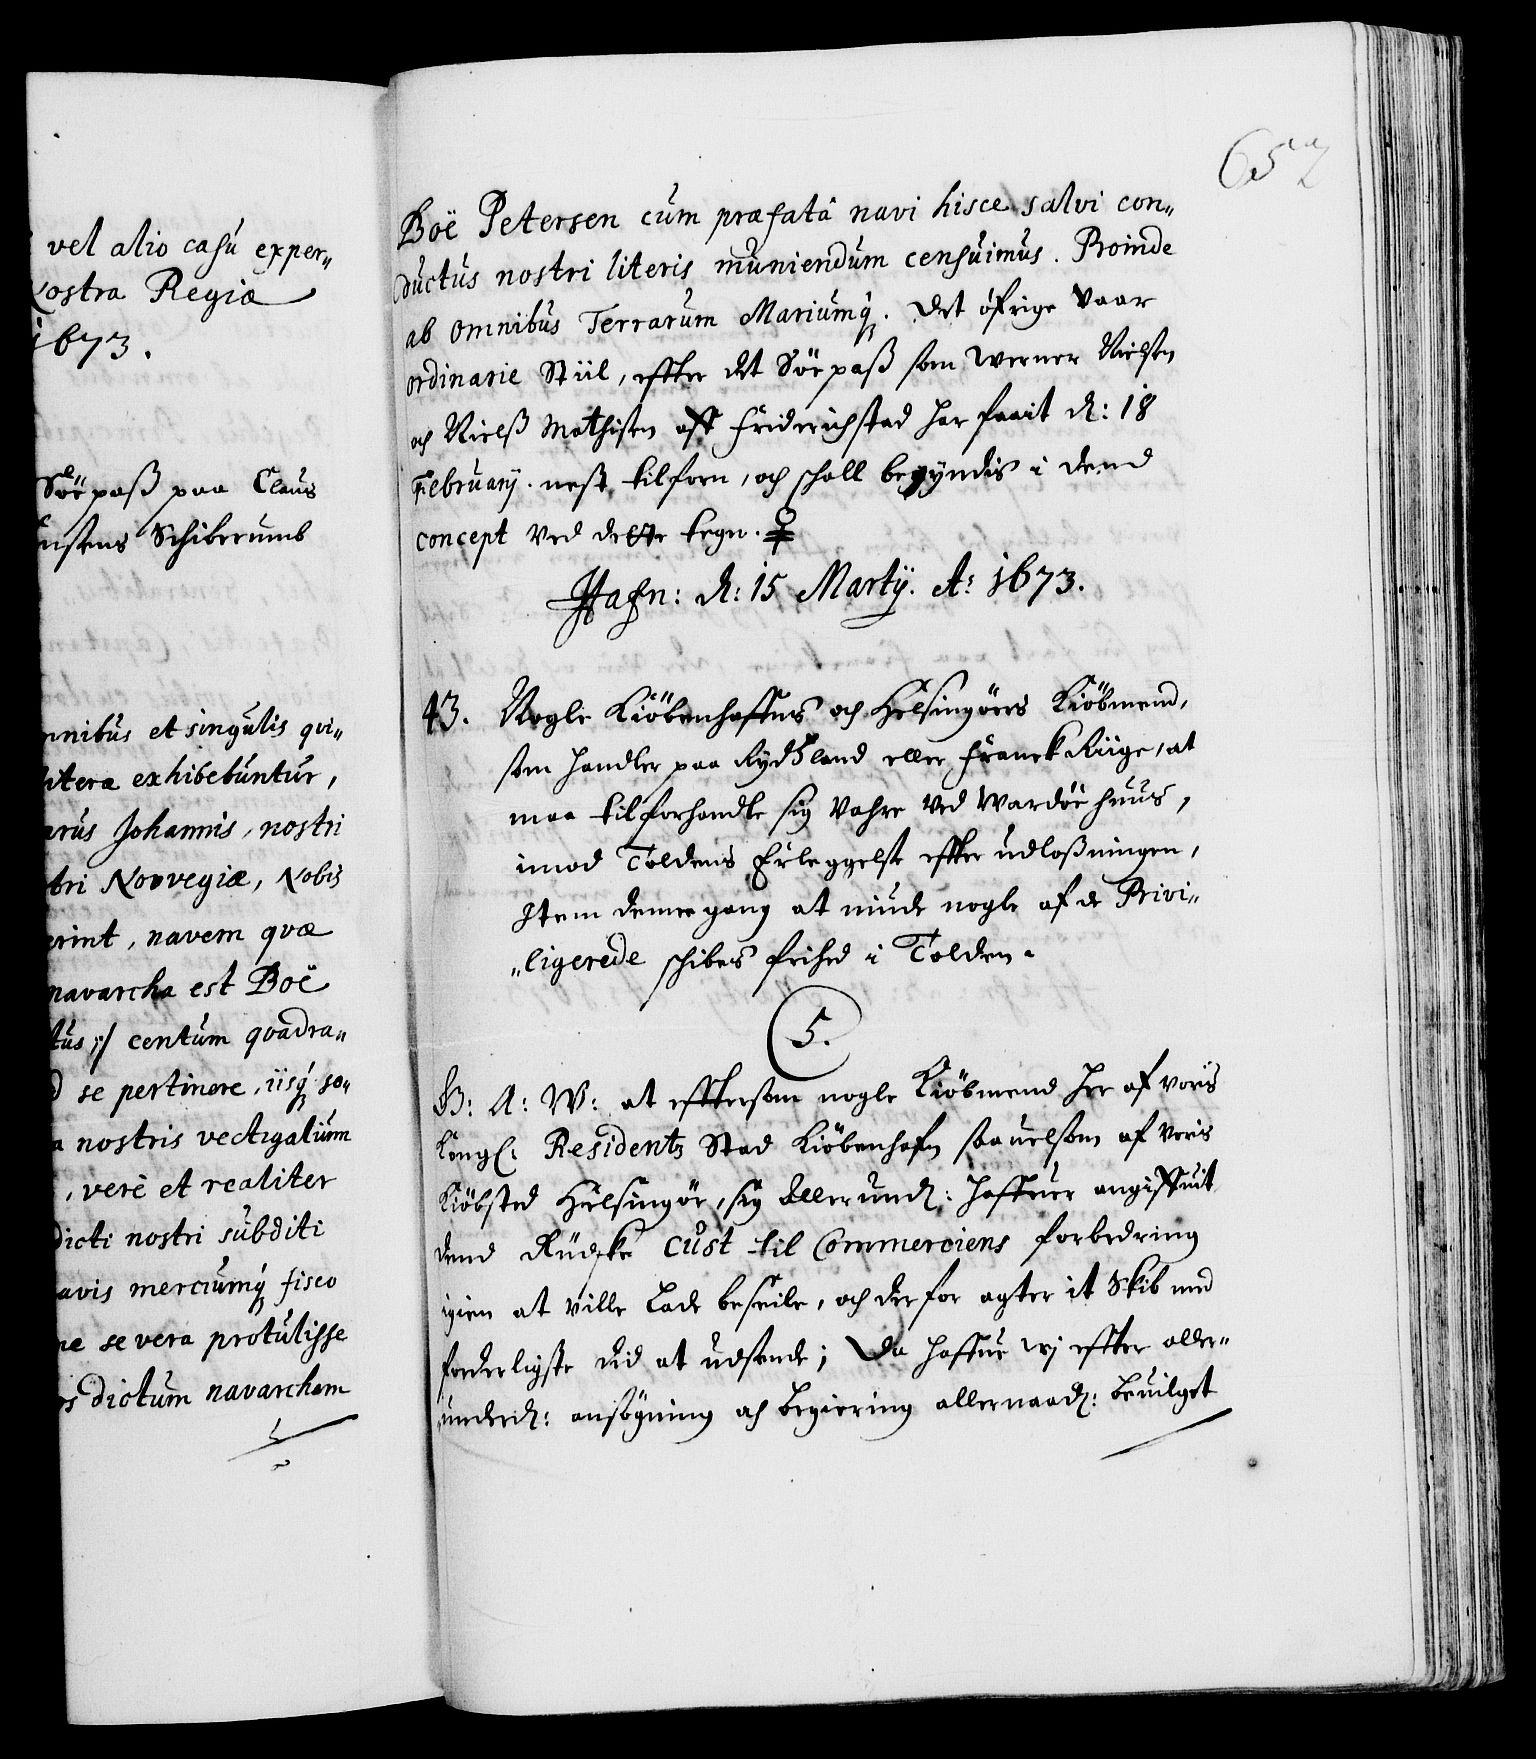 vel alio casu exper„
Nostra Regia
1673.
Söepaß paa Claus
Schiberumb
omnibus et singulis qvi„
litera exhibebuntur,
Johannis, nostri
Norvegiæ, Nobis
navem qvæ
navarcha est Boë
centum qvadra„
se pertinere, iisq́ so„
nostris vectigalium
, verè et realiter
dicti nostri subditi
navis merciumq́ fisco
se vera protulisse
dictum navarcham
657
Boë Petersen cum præfatâ navi hisce salvi con„
ductus nostri literis muniendum censuimus. Proinde
ab omnibus Terrarum Mariumq́. Det öfrige Vaar
ordinarie Stiil, effter det Söepaß som Werner Nielsen
och Nielß Mathisen aff Friderichstad har faait d: 18
February. nest tilforn, och schall begyndis i dend
concept ved dette tegn. ♀
Hafn: d: 15 Martij. Aō 1673.
43. Nogle Kiöbenhaffns och Helsingörs Kiöbmend,
som handler paa Rydsland eller Franckriige, at
maa tilforhandle sig Vahre ved Wardöehuus,
imod Toldens Erleggelse effter udloßningen,
Item denne gang at niude nogle af de Privi„
„ligerede schibes frihed i Tolden.
5.
G: A: W: at efftersom nogle Kiöbmend her af voris
Kongl: Residentz Stad Kiöbenhafn saauelsom af voris
Kiöbsted Helsingör, sig allerund: haffuer angiffuit
dend Rüdske Cust til Commerciens forbedring
igien at ville lade beseile, och derfor agter it Skib med
forderligste did at udsende; Da haffue wj effter aller„
underd: ansögning och begiering allernaad: beuilget